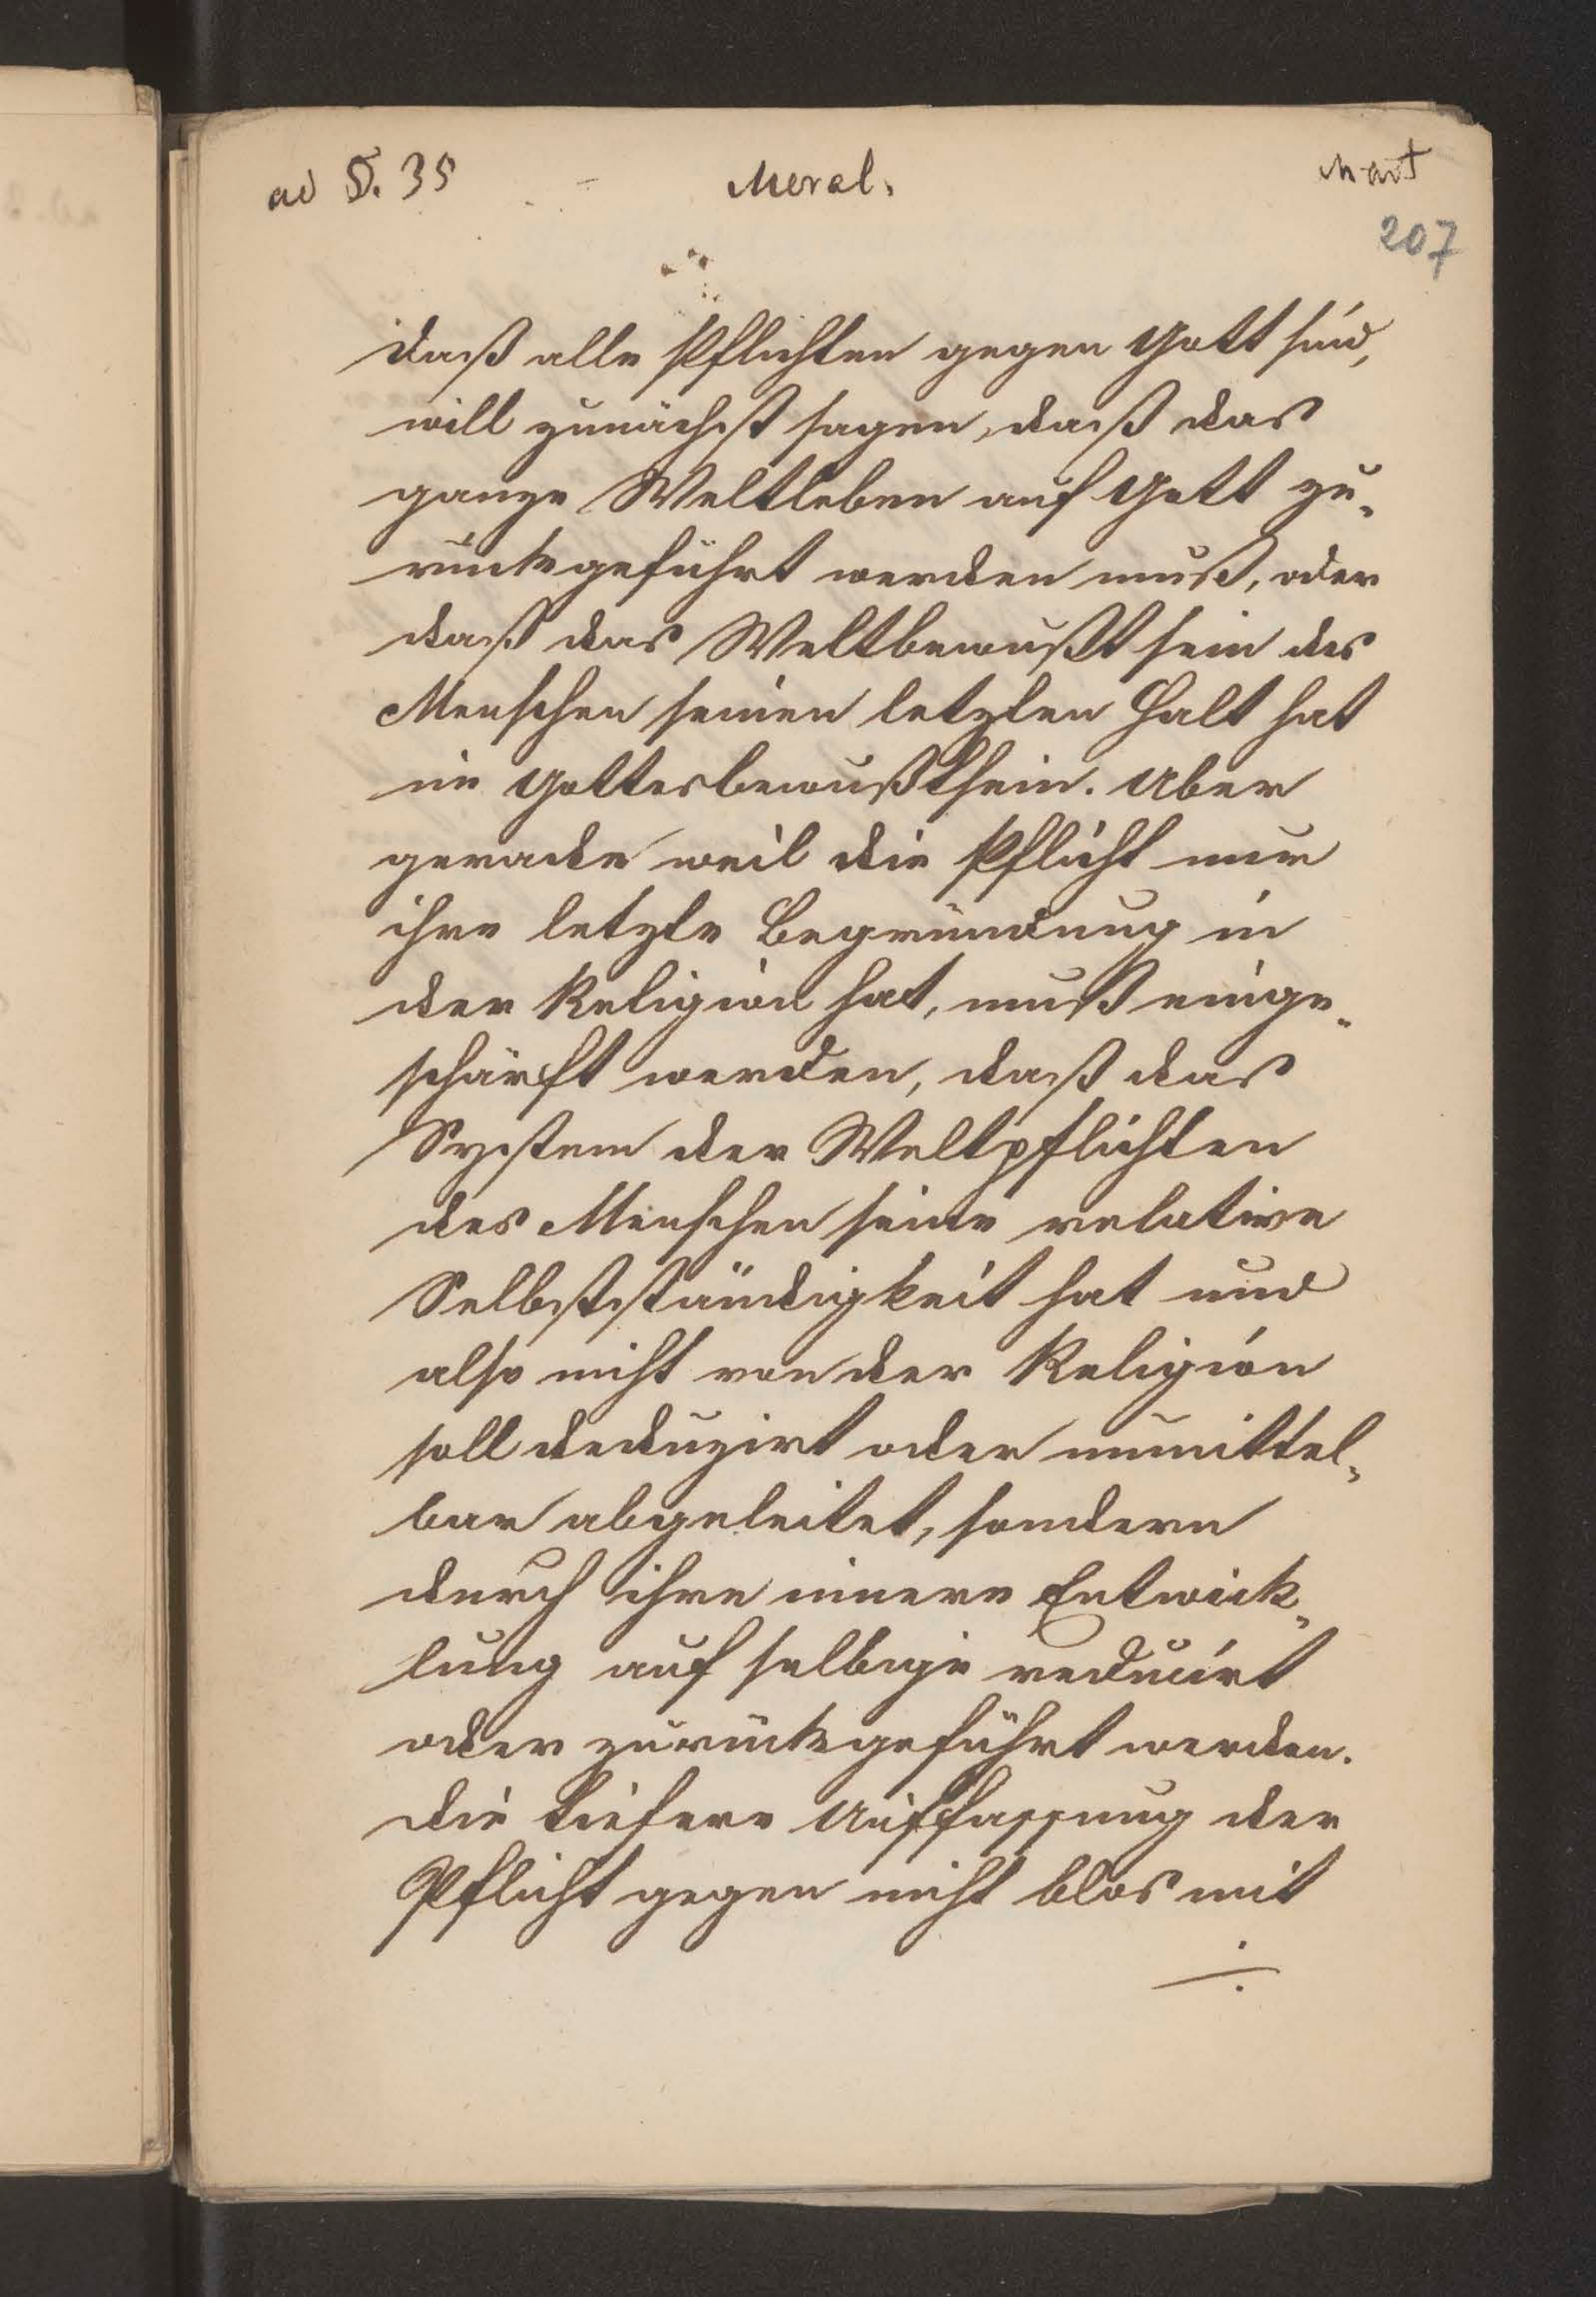 ad S. 35
Moral.
Mart
207
daß alle Pflichten gegen Gott sind,
will zunächst sagen, daß das
ganze Weltleben auf Gott zu-
rückgeführt werden muß, oder
daß das Weltbewußtsein des
Menschen seinen letzten Halt hat
im Gottesbewußtsein. Aber
gerade weil die Pflicht nur
ihre letzte Begründung in
der Religion hat, muß einge-
schärft werden, daß das
System der Weltpflichten
des Menschen seine relative
Selbstständigkeit hat und
also nicht von der Religion
soll deduzirt oder unmittel-
bar abgeleitet, sondern
durch ihre innere Entwick-
lung auf selbige reducirt
oder zurückgeführt werden.
Die tiefere Auffassung der
Pflicht gegen nicht blos mit
./.